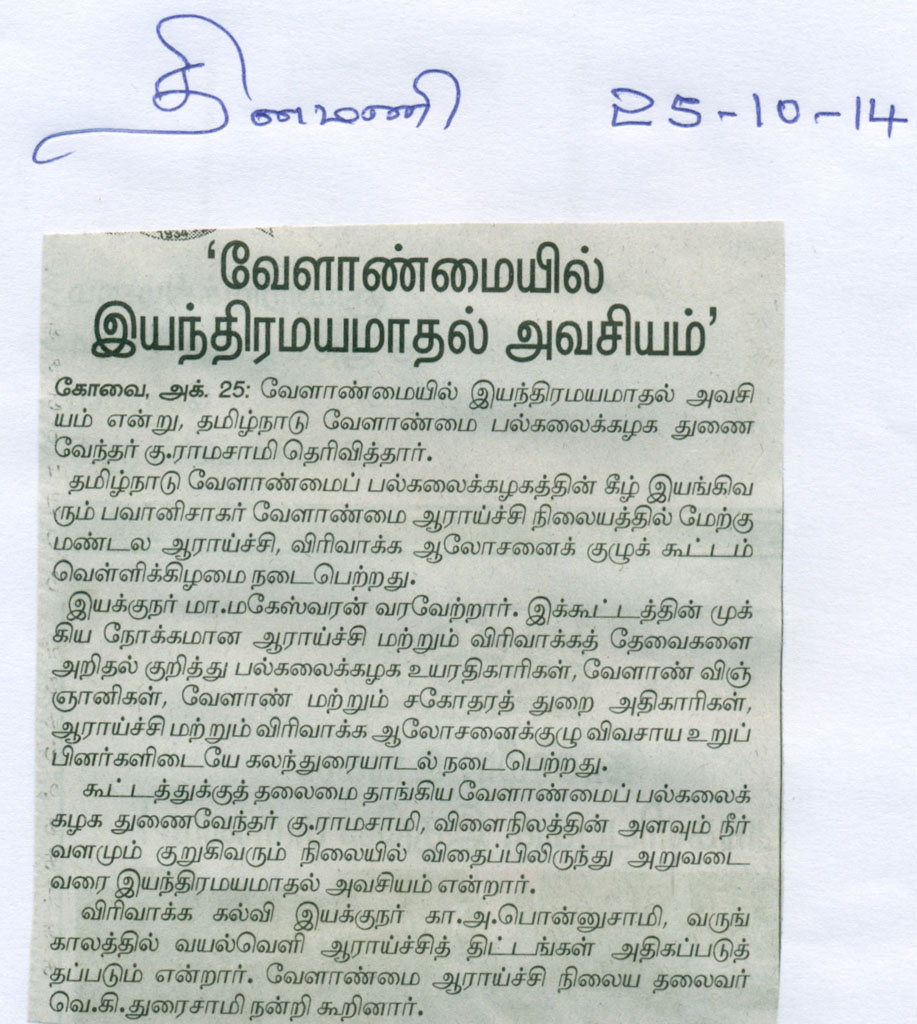 தினமணி 25-10-14
1934
‘வேளாண்மையில்
இயந்திரமயமாதல் அவசியம்’
கோவை, அக். 25: வேளாண்மையில் இயந்திரமயமாதல் அவசி
யம் என்று, தமிழ்நாடு வேளாண்மை பல்கலைக்கழக துணை
வேந்தர் கு.ராமசாமி தெரிவித்தார்.
தமிழ்நாடு வேளாண்மைப் பல்கலைக்கழகத்தின் கீழ் இயங்கிவ
ரும் பவானிசாகர் வேளாண்மை ஆராய்ச்சி நிலையத்தில் மேற்கு
மண்டல ஆராய்ச்சி, விரிவாக்க ஆலோசனைக் குழுக் கூட்டம்
வெள்ளிக்கிழமை நடைபெற்றது.
இயக்குநர் மா.மகேஸ்வரன் வரவேற்றார். இக்கூட்டத்தின் முக்
கிய நோக்கமான ஆராய்ச்சி மற்றும் விரிவாக்கத் தேவைகளை
அறிதல் குறித்து பல்கலைக்கழக உயரதிகாரிகள், வேளாண் விஞ்
ஞானிகள், வேளாண் மற்றும் சகோதரத் துறை அதிகாரிகள்,
ஆராய்ச்சி மற்றும் விரிவாக்க ஆலோசனைக்குழு விவசாய உறுப்
பினர்களிடையே கலந்துரையாடல் நடைபெற்றது.
கூட்டத்துக்குத் தலைமை தாங்கிய வேளாண்மைப் பல்கலைக்
கழக துணைவேந்தர் கு.ராமசாமி, விளைநிலத்தின் அளவும் நீர்
வளமும் குறுகிவரும் நிலையில் விதைப்பிலிருந்து அறுவடை
வரை இயந்திரமயமாதல் அவசியம் என்றார்.
விரிவாக்க கல்வி இயக்குநர் கா.அ.பொன்னுசாமி, வருங்
காலத்தில் வயல்வெளி ஆராய்ச்சித் திட்டங்கள் அதிகப்படுத்
தப்படும் என்றார். வேளாண்மை ஆராய்ச்சி நிலைய தலைவர்
வெ.கி.துரைசாமி நன்றி கூறினார்.